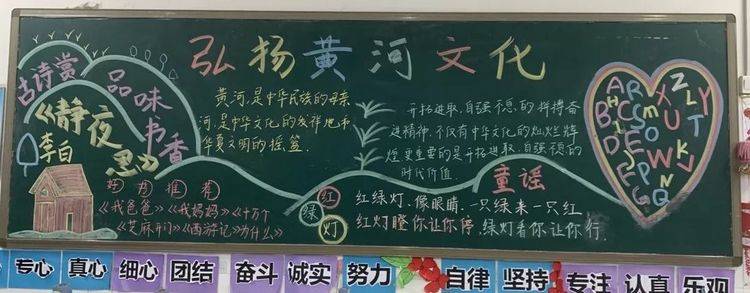 弘扬黄河文化
古诗赏
品味书香
《静夜思》
李白
黄河,是中华民族的母亲
河,是中华文化的发祥地和
华夏文明的摇篮
开拓进取、自强不息的拼搏奋
进精神,不仅有中华文化的灿烂辉
煌更重要的是开拓进取、自强不息的
时代价值
好书推荐
《我爸爸》《我妈妈》《十万个
《芝麻开门》《西游记》为什么》
红
绿
灯
童谣
红绿灯,像眼睛,一只绿来一只红
红灯瞪你让你停,绿灯看你让你行.
专心 真心 细心 团结 奋斗 诚实 努力 自律 坚持 专注 认真 乐观